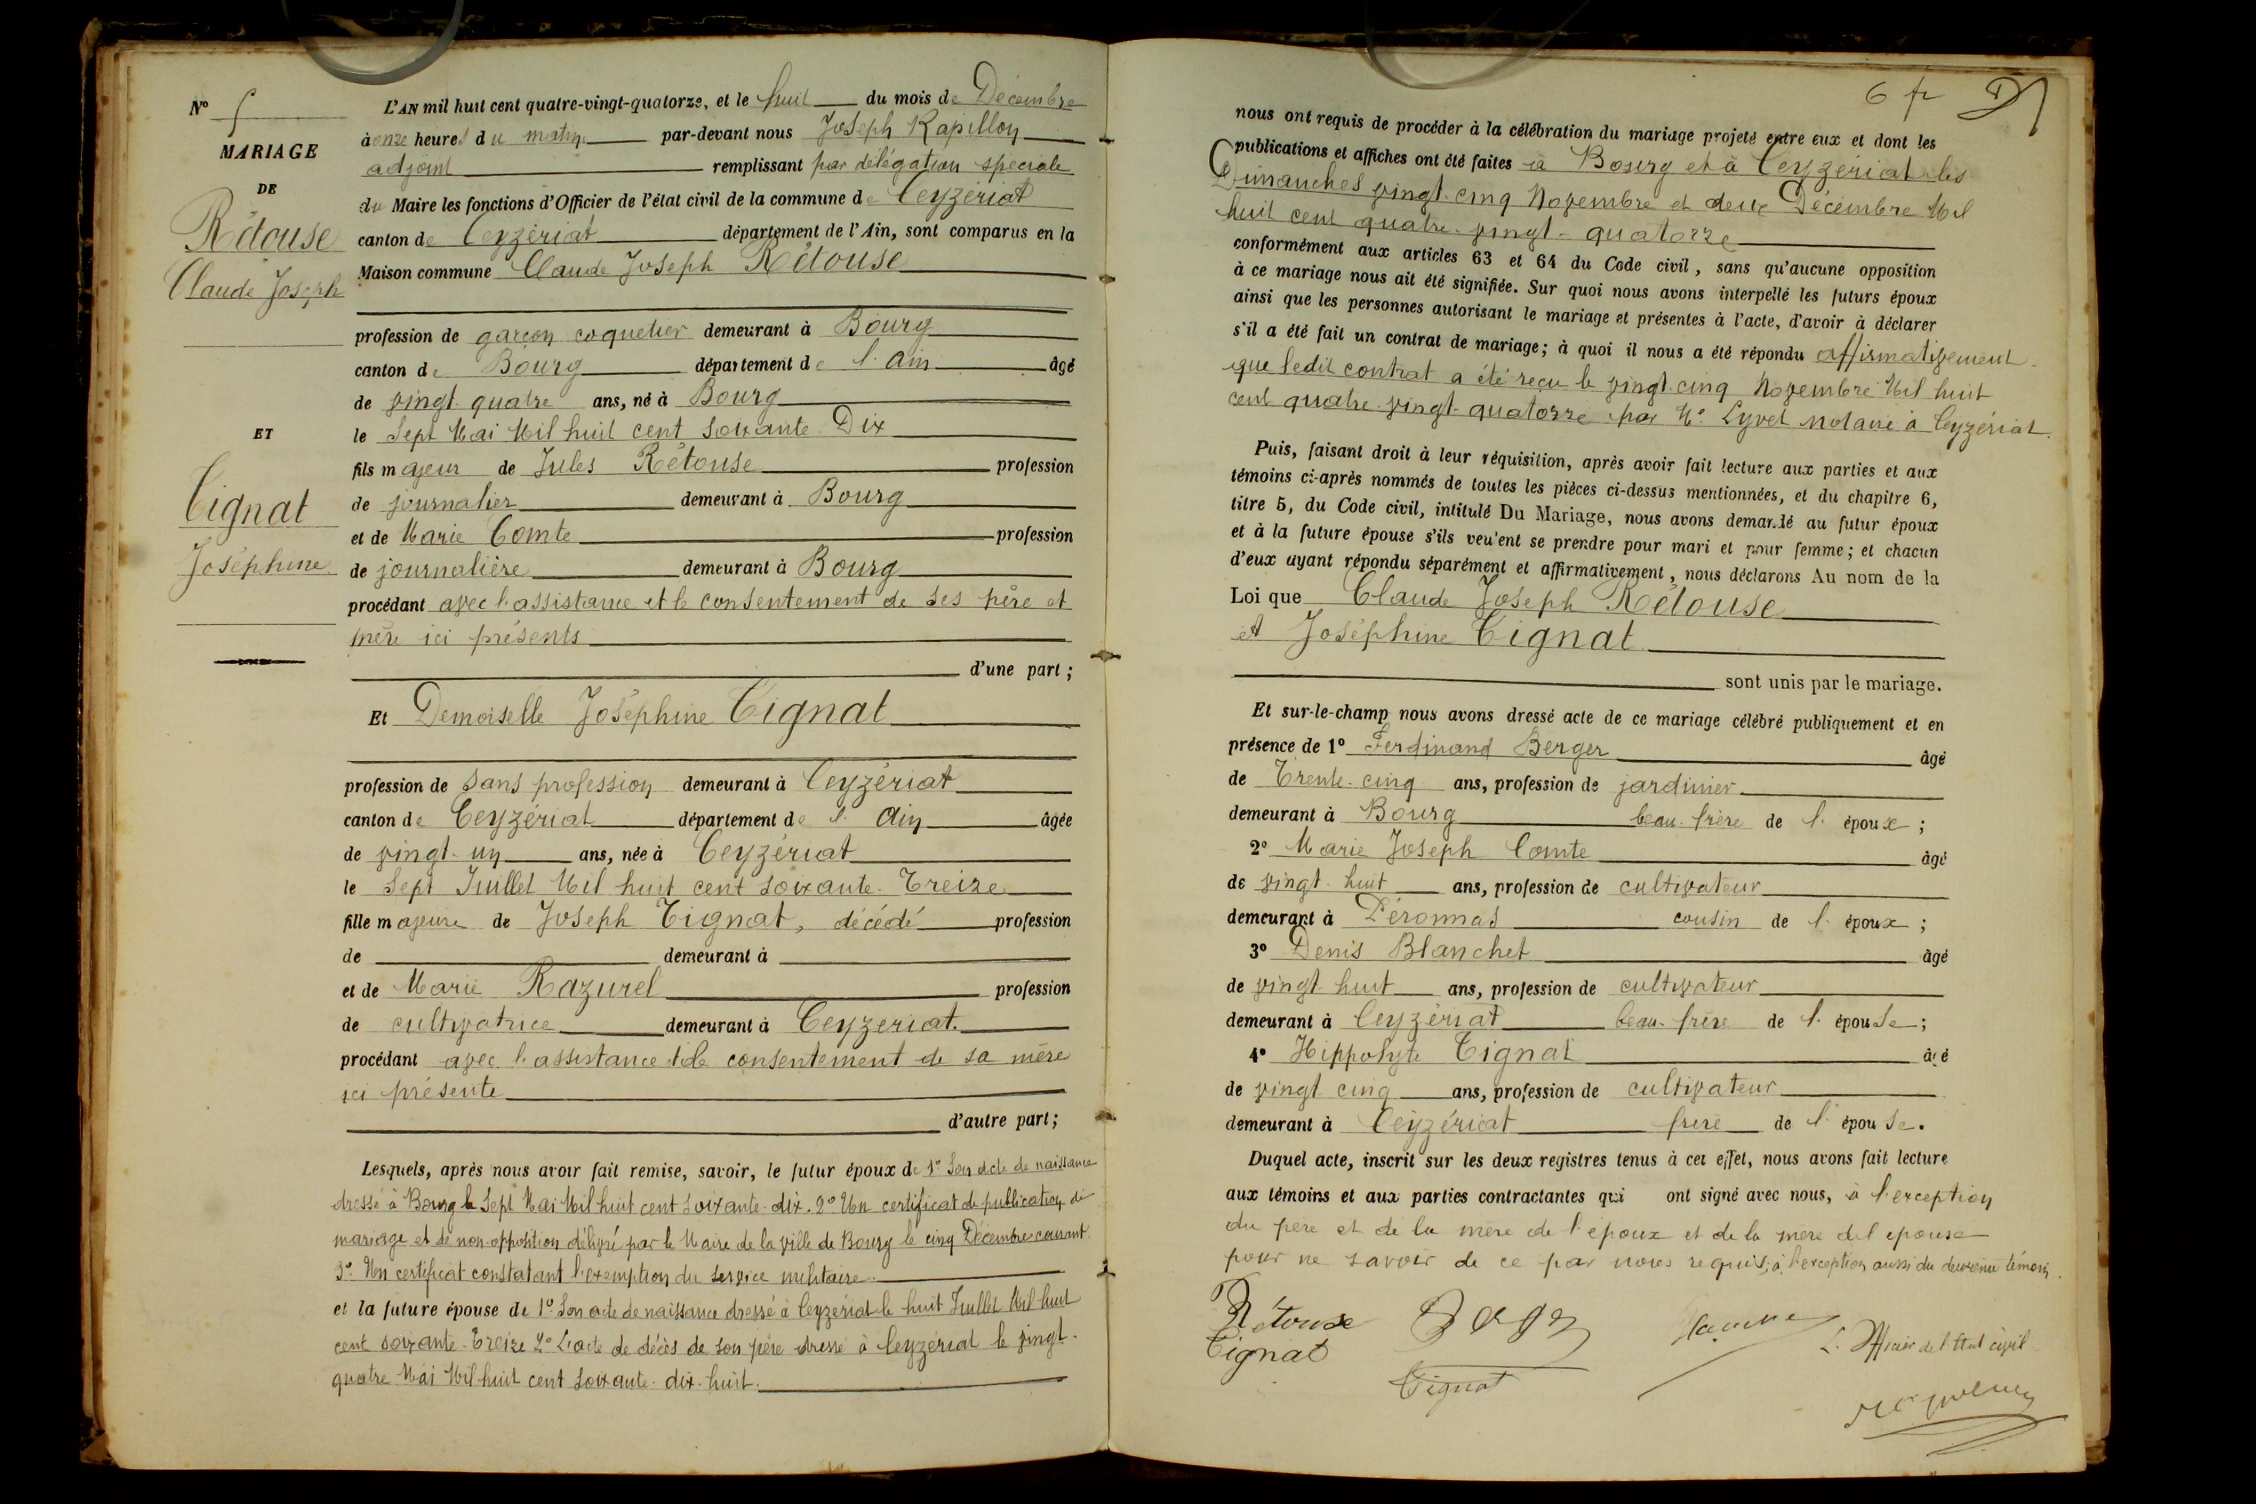 N° 5
MARIAGE
DE
Rétouse
Claude Joseph
ET
Tignat
Joséphine
L'AN mil huit cent quatre-vingt-quatorze, et le huit du mois de Décembre
à onze heures du matin par-devant nous Joseph Rapillon
adjoint remplissant par délégation spéciale
du Maire les fonctions d'Officier de l'état civil de la commune de Ceyzériat
canton de Ceyzériat département de l'Ain, sont comparus en la
Maison commune Claude Joseph Rétouse
profession de garçon coquetier demeurant à Bourg
canton de Bourg département de l'ain âgé
de vingt-quatre ans, né à Bourg
le Sept Mai Mil huit cent soixante-Dix
fils majeur de Jules Rétouse profession
de journalier demeurant à Bourg
et de Marie Comte profession
de journalière demeurant à Bourg
procédant avec l'assistance et le consentement de ses père et
mère ici présents
d'une part ;
Et Demoiselle Joséphine Tignat
profession de sans profession demeurant à Ceyzériat
canton de Ceyzériat département de l'Ain âgée
de vingt-un ans, née à Ceyzériat
le Sept Juillet Mil huit cent soixante-Treize
fille majeure de Joseph Tignat, décédé profession
de demeurant à
et de Marie Razurel profession
de cultivatrice demeurant à Ceyzeriat.
procédant avec l'assistance et le consentement de sa mère
ici présente
d'autre part ;
Lesquels, après nous avoir fait remise, savoir, le futur époux de 1° Son acte de naissance
dressé à Bourg le Sept Mai Mil huit cent soixante-dix. 2° Un certificat de publication de
mariage et de non-opposition délivré par le Maire de la ville de Bourg le cinq Décembre courant.
3° Un certificat constatant l'exemption du service militaire.
et la future épouse de 1° Son acte de naissance dressé à Ceyzériat le huit Juillet Mil huit
cent soixante-Treize 2° L'acte de décès de son père dressé à Ceyzériat le vingt-
quatre Mai Mil huit cent soixante-dix-huit.
6 fr
nous ont requis de procéder à la célébration du mariage projeté entre eux et dont les
publications et affiches ont été faites à Bourg et à Ceyzériat les
Dimanches vingt-cinq Novembre et deux Décembre Mil
huit cent quatre-vingt-quatorze
conformément aux articles 63 et 64 du Code civil, sans qu'aucune opposition
à ce mariage nous ait été signifiée. Sur quoi nous avons interpellé les futurs époux
ainsi que les personnes autorisant le mariage et présentes à l'acte, d'avoir à déclarer
s'il a été fait un contrat de mariage ; à quoi il nous a été répondu affirmativement
que ledit contrat a été reçu le vingt-cinq Novembre Mil huit
cent quatre-vingt-quatorze par Me Lyvet notaire à Ceyzériat.
Puis, faisant droit à leur réquisition, après avoir fait lecture aux parties et aux
témoins ci-après nommés de toutes les pièces ci-dessus mentionnées, et du chapitre 6,
titre 5, du Code civil, intitulé Du Mariage, nous avons demandé au futur époux
et à la future épouse s'ils veulent se prendre pour mari et pour femme ; et chacun
d'eux ayant répondu séparément et affirmativement, nous déclarons Au nom de la
Loi que Claude Joseph Rétouse
et Joséphine Tignat
sont unis par le mariage.
Et sur-le-champ nous avons dressé acte de ce mariage célébré publiquement et en
présence de 1° Ferdinand Berger âgé
de Trente-cinq ans, profession de jardinier
demeurant à Bourg beau-frère de l'époux ;
2° Marie Joseph Comte âgé
de vingt-huit ans, profession de cultivateur
demeurant à Péronnas cousin de l'époux ;
3° Denis Blanchet âgé
de vingt-huit ans, profession de cultivateur
demeurant à Ceyzériat beau-frère de l'épouse ;
4° Hippolyte Tignat âgé
de vingt-cinq ans, profession de cultivateur
demeurant à Ceyzériat frère de l'épouse.
Duquel acte, inscrit sur les deux registres tenus à cet effet, nous avons fait lecture
aux témoins et aux parties contractantes qui ont signé avec nous, à l'exception
du père et de la mère de l'époux et de la mère de l'épouse
pour ne savoir de ce par nous requis, à l'exception aussi du deuxième témoin.
Rétouse
Tignat
Tignat
L'Officier de l'Etat civil